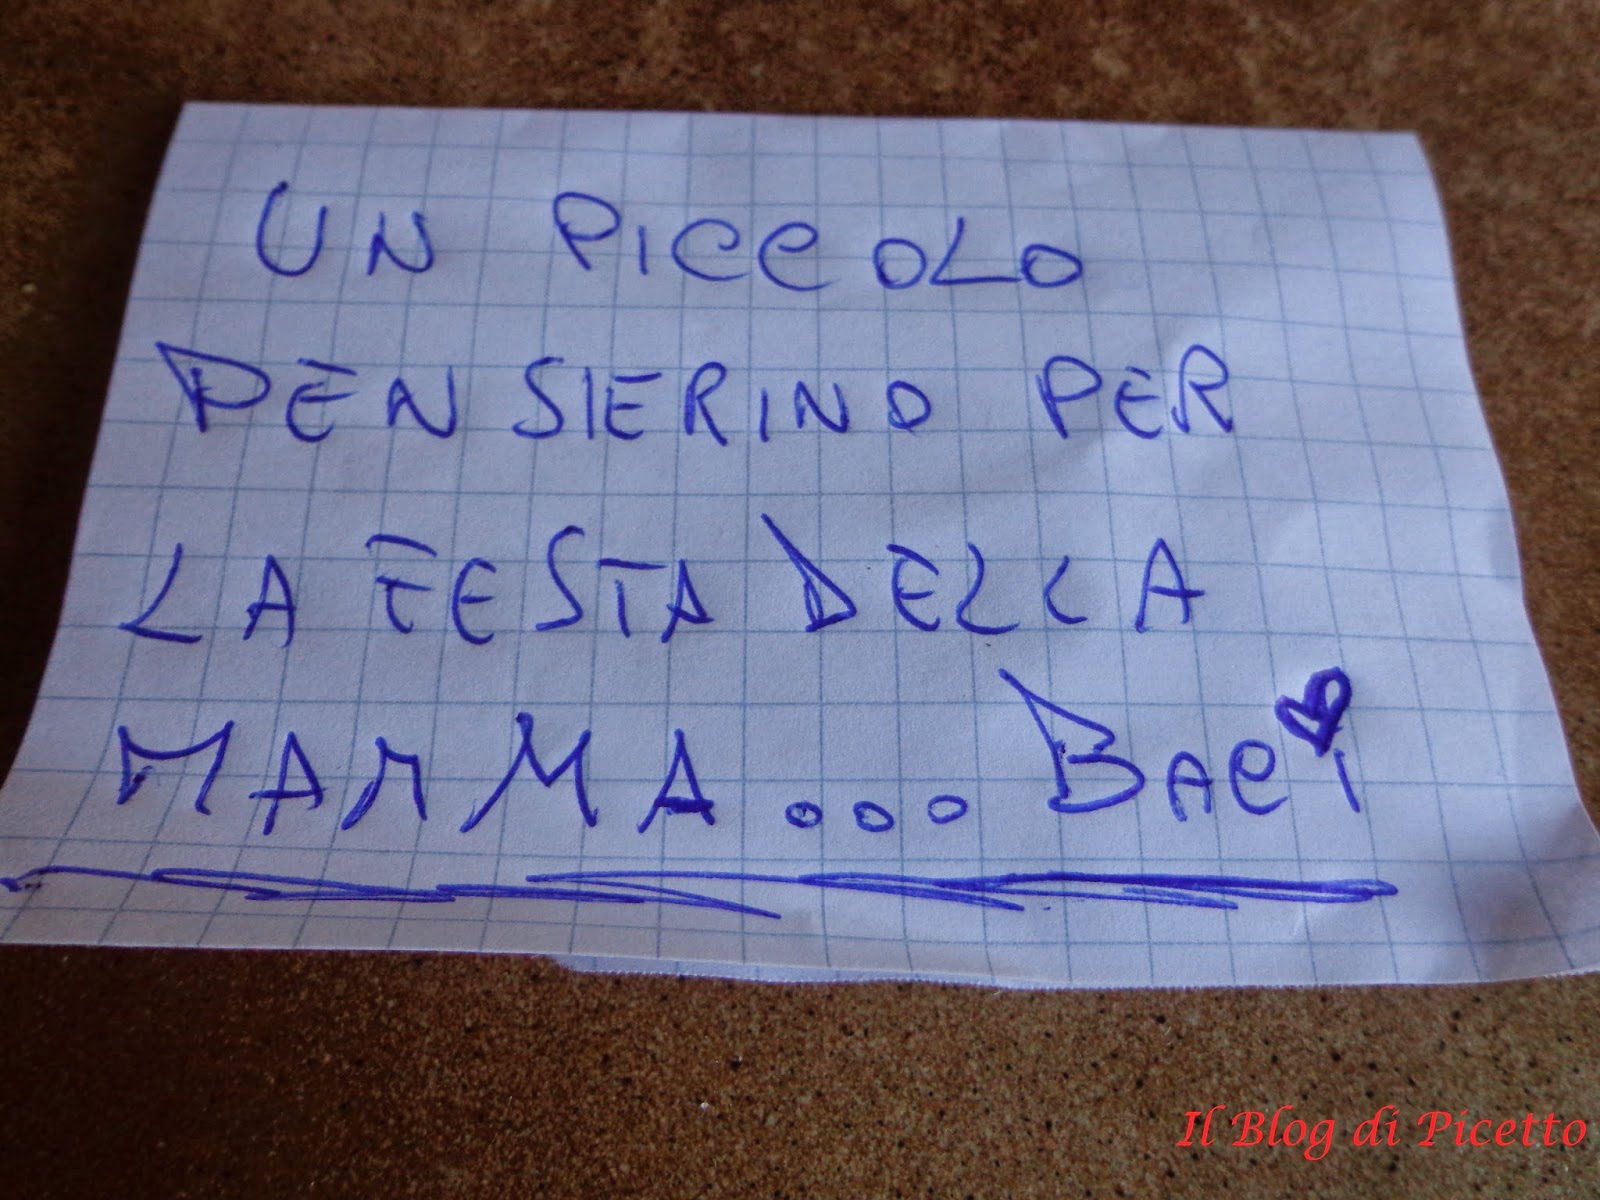 UN PICCOLO
PENSIERINO PER
LA FESTA DELLA
MAMMA... BACI
Il Blog di Picetto